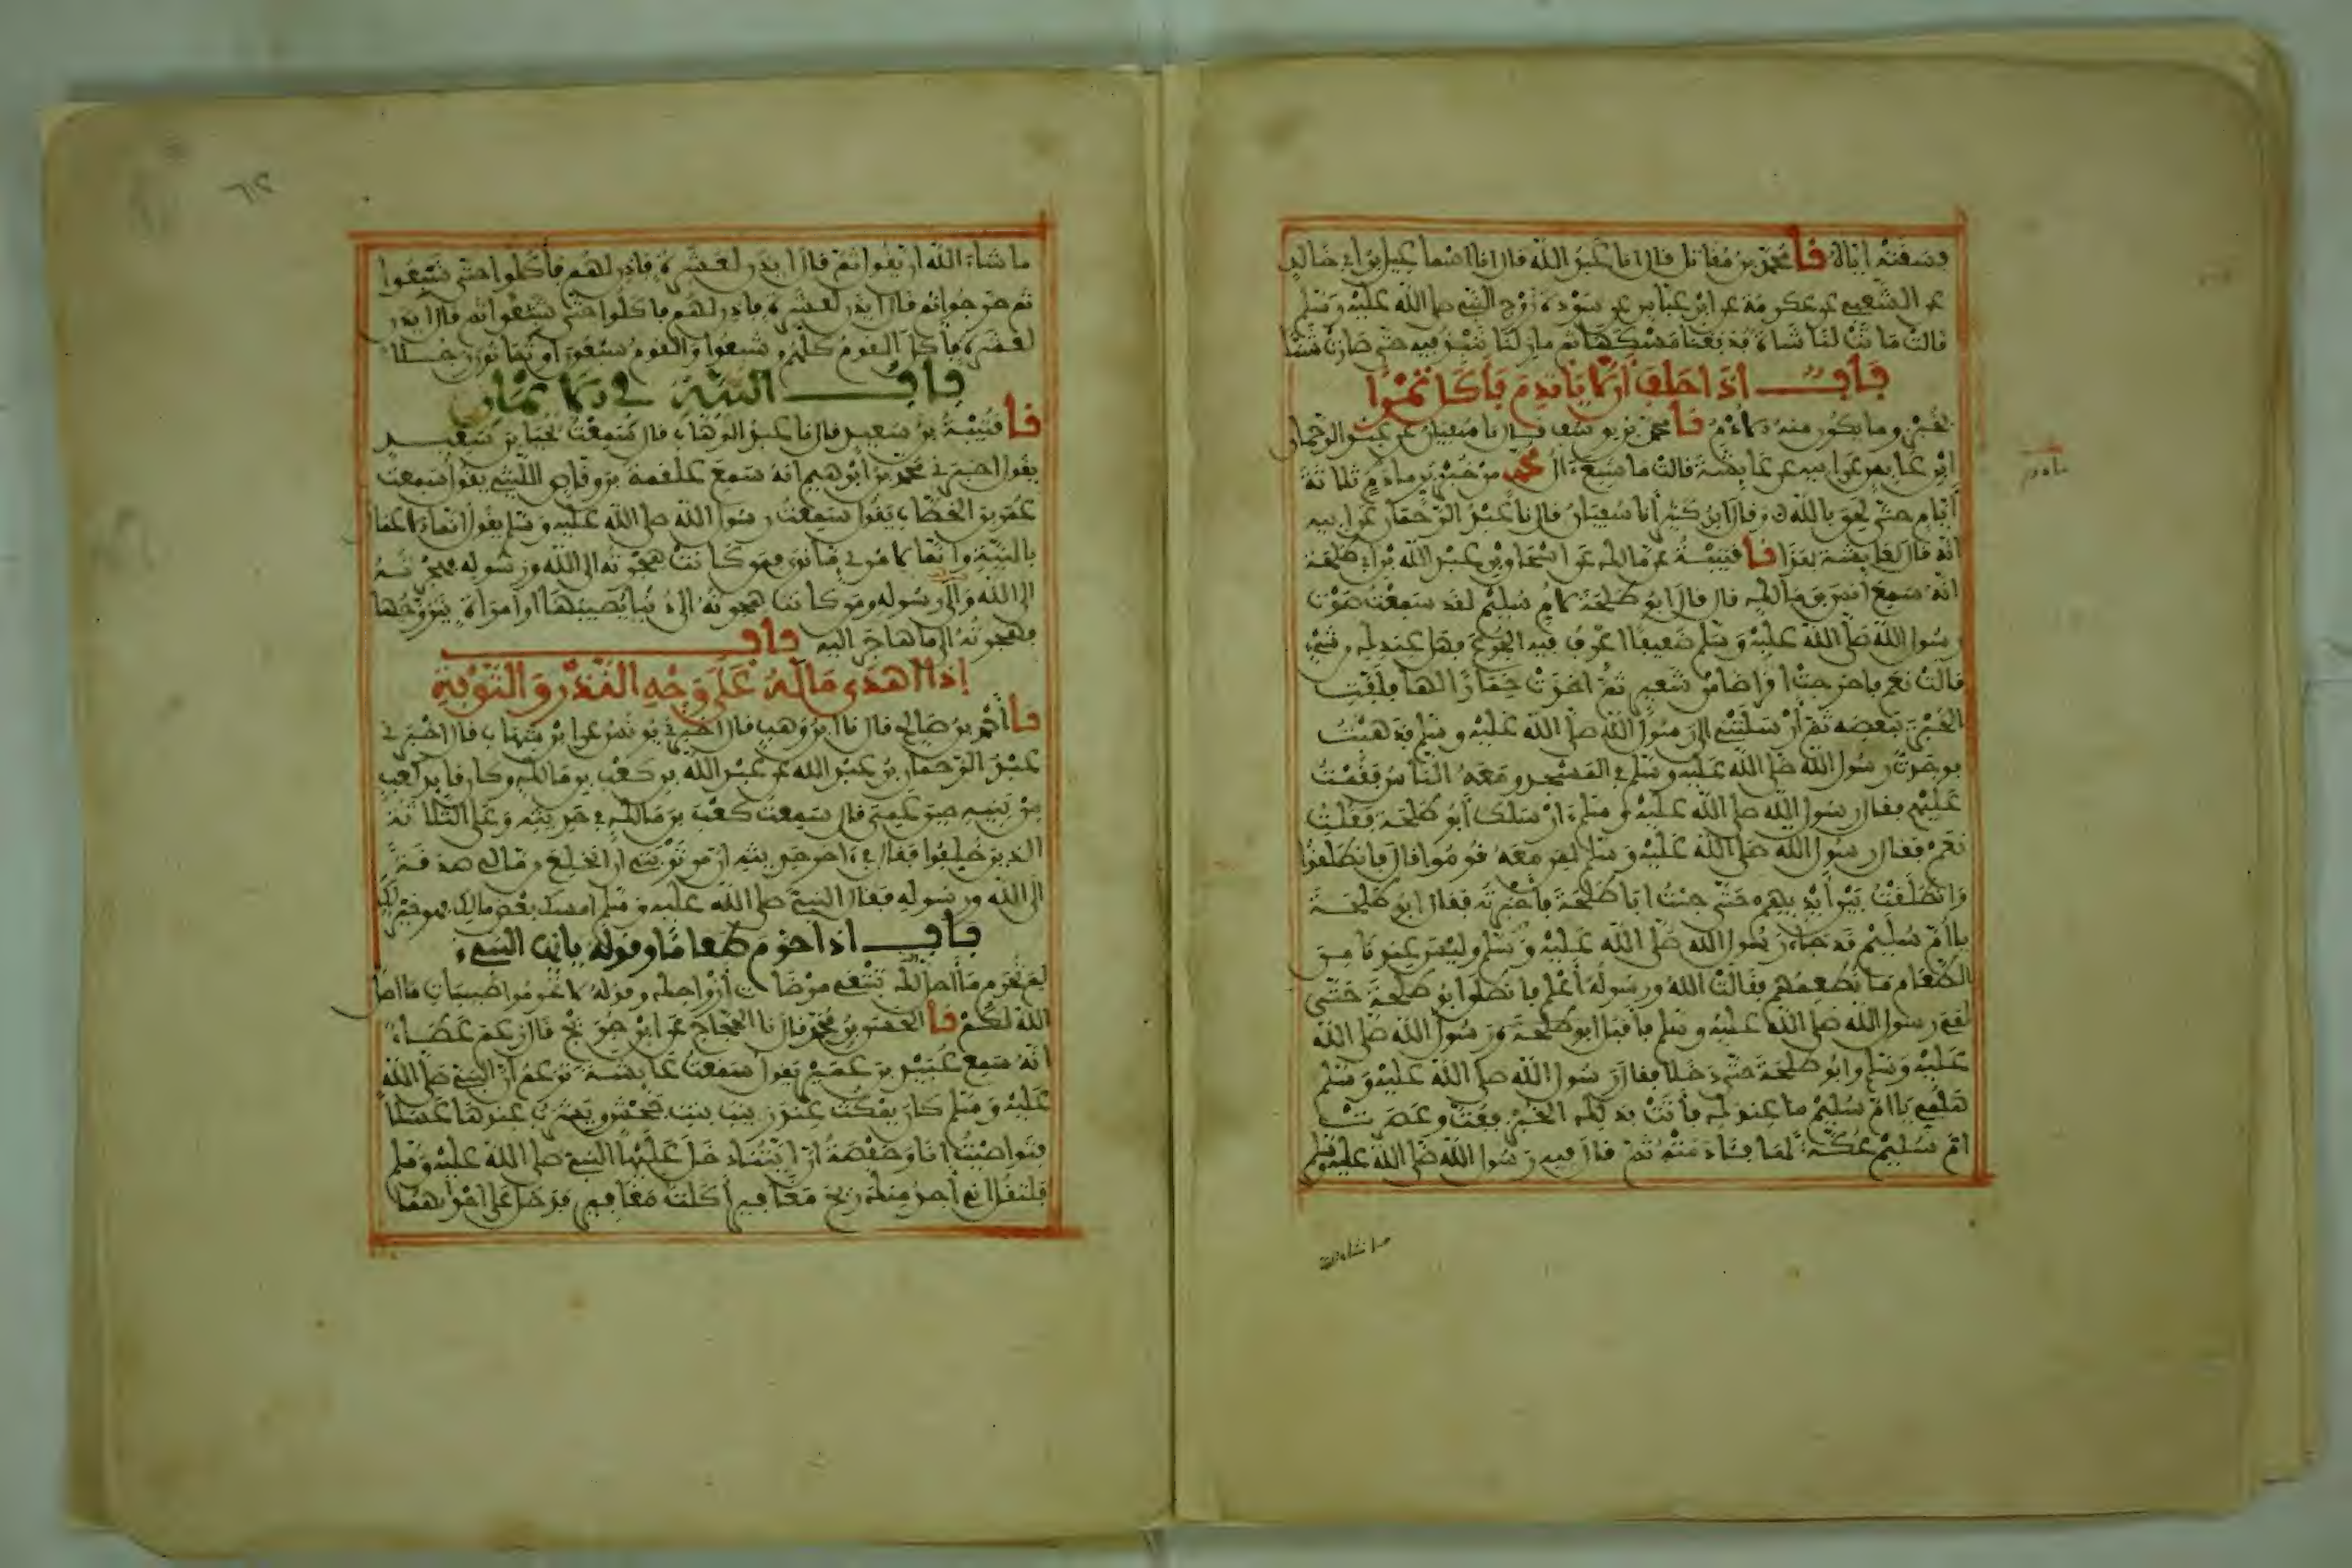 فسقته اياه نا محمد بن مقاتل قال انا عبد الله قال انا اسماعيل بن ابي خالد
عن الشعبي عن عكرمة عن ابن عباس عن سودة زوج النبي صلى الله عليه وسلم
قالت ماتت لنا شاة فدبغنا مسكها ثم مازلنا ننبذ فيه حتى صارت شنا
باب اذا حلف ان لا ياتدم فاكل تمرا
بخبز وما يكون منه الادم نا محمد بن يوسف قال نا سفيان عن عبد الرحمان
ابن عابس عن ابيه عن عايشة قالت ما شبع ال محمد من خبز بر مادوم ثلاثة
ايام حتى لحق بالله وقال ابن كثير انا سفيان قال نا عبد الرحمان عن ابيه
انه قال لعايشة بهذا نا قتيبة عن مالك عن اسحاق بن عبد الله بن ابي طلحة
انه سمع انس بن مالك قال قال ابو طلحة لام سليم لقد سمعت صوت
رسول الله صلى الله عليه وسلم ضعيفا اعرف فيه الجوع فهل عندك من شيء
قالت نعم فاخرجت اقراصا من شعير ثم اخذت خمارا لها فلفت
الخبز ببعضه ثم ارسلتني الى رسول الله صلى الله عليه وسلم فذهبت
فوجدت رسول الله صلى الله عليه وسلم في المسجد ومعه الناس فقمت
عليهم فقال رسول الله صلى الله عليه وسلم ارسلك ابو طلحة فقلت
نعم فقال رسول الله صلى الله عليه وسلم لمن معه قوموا قال فانطلقوا
وانطلقت بين ايديهم حتى جئت ابا طلحة فاخبرته فقال ابو طلحة
يا ام سليم قد جاء رسول الله صلى الله عليه وسلم وليس عندنا من
الطعام ما نطعمهم فقالت الله ورسوله اعلم فانطلق ابو طلحة حتى
لقي رسول الله صلى الله عليه وسلم فاقبل ابو طلحة ورسول الله صلى الله
عليه وسلم وابو طلحة حتى دخلا فقال رسول الله صلى الله عليه وسلم
هلمي يا ام سليم ما عندك فاتت بذلك الخبز ففت وعصرت
ام سليم عكة لها فادمته ثم قال فيه رسول الله صلى الله عليه وسلم
مادوم
ما شاء الله
ما شاء الله ان يقول ثم قال ايذن لعشرة فاذن لهم فاكلوا حتى شبعوا
ثم خرجوا ثم قال ايذن لعشرة فاذن لهم فاكلوا حتى شبعوا ثم قال ايذن
لعشرة فاكل القوم كلهم وشبعوا والقوم سبعون او ثمانون رجلا
باب النية في الايمان
نا قتيبة بن سعيد قال نا عبد الوهاب قال سمعت يحيى بن سعيد
يقول اخبرني محمد بن ابرهيم انه سمع علقمة بن وقاص الليثي يقول سمعت
عمر بن الخطاب يقول سمعت رسول الله صلى الله عليه وسلم يقول انما الاعمال
بالنية وانما لامرئ ما نوى فمن كانت هجرته الى الله ورسوله فهجرته
الى الله والى رسوله ومن كانت هجرته الى دنيا يصيبها او امراة يتزوجها
فهجرته الى ما هاجر اليه باب
اذا اهدى ماله على وجه النذر والتوبة
نا احمد بن صالح قال نا ابن وهب قال اخبرني يونس عن ابن شهاب قال اخبرني
عبد الرحمان بن عبد الله عن عبد الله بن كعب بن مالك وكان قايد كعب
من بنيه حين عمي قال سمعت كعب بن مالك في حديثه وعلى الثلاثة
الذين خلفوا فقال في اخر حديثه ان من توبتي ان انخلع من مالي صدقة
الى الله ورسوله فقال النبي صلى الله عليه وسلم امسك بعض مالك فهو خير لك
باب اذا حرم طعاما وقوله يا ايها النبيء
لم تحرم ما احل الله لك تبتغي مرضات ازواجك وقوله لا تحرموا طيبات ما احل
الله لكم نا الحسن بن محمد قال نا الحجاج عن ابن جريج قال زعم عطاء
انه سمع عبيد بن عمير يقول سمعت عايشة تزعم ان النبي صلى الله
عليه وسلم كان يمكث عند زينب بنت جحش ويشرب عندها عسلا
فتواصيت انا وحفصة ان ايتنا دخل عليها النبي صلى الله عليه وسلم
فلتقل اني اجد منك ريح مغافير اكلت مغافير فدخل على احداهما